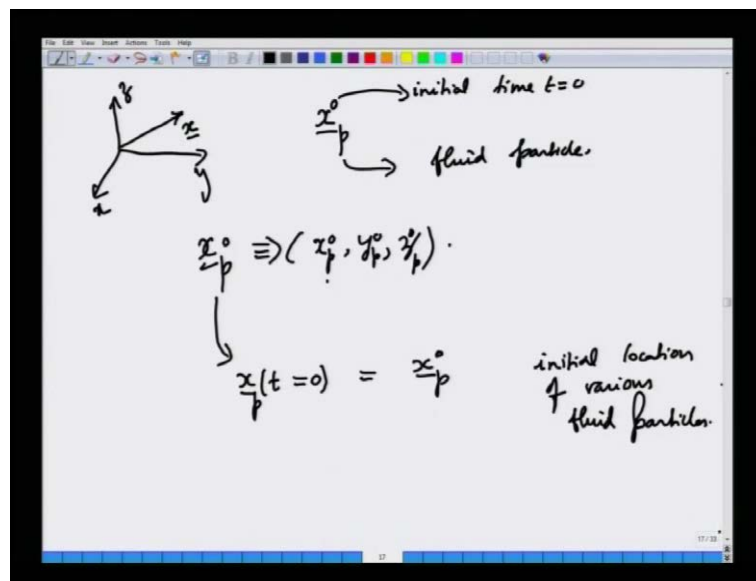 File Edit View Insert Actions Tools Help
z
x
y
x
x⁰p
initial time t=0
fluid particle.
x⁰p ≡ ( x⁰p , y⁰p , z⁰p ) .
x p (t = 0) = x⁰p
initial location
of various
fluid particles.
17 / 33
17